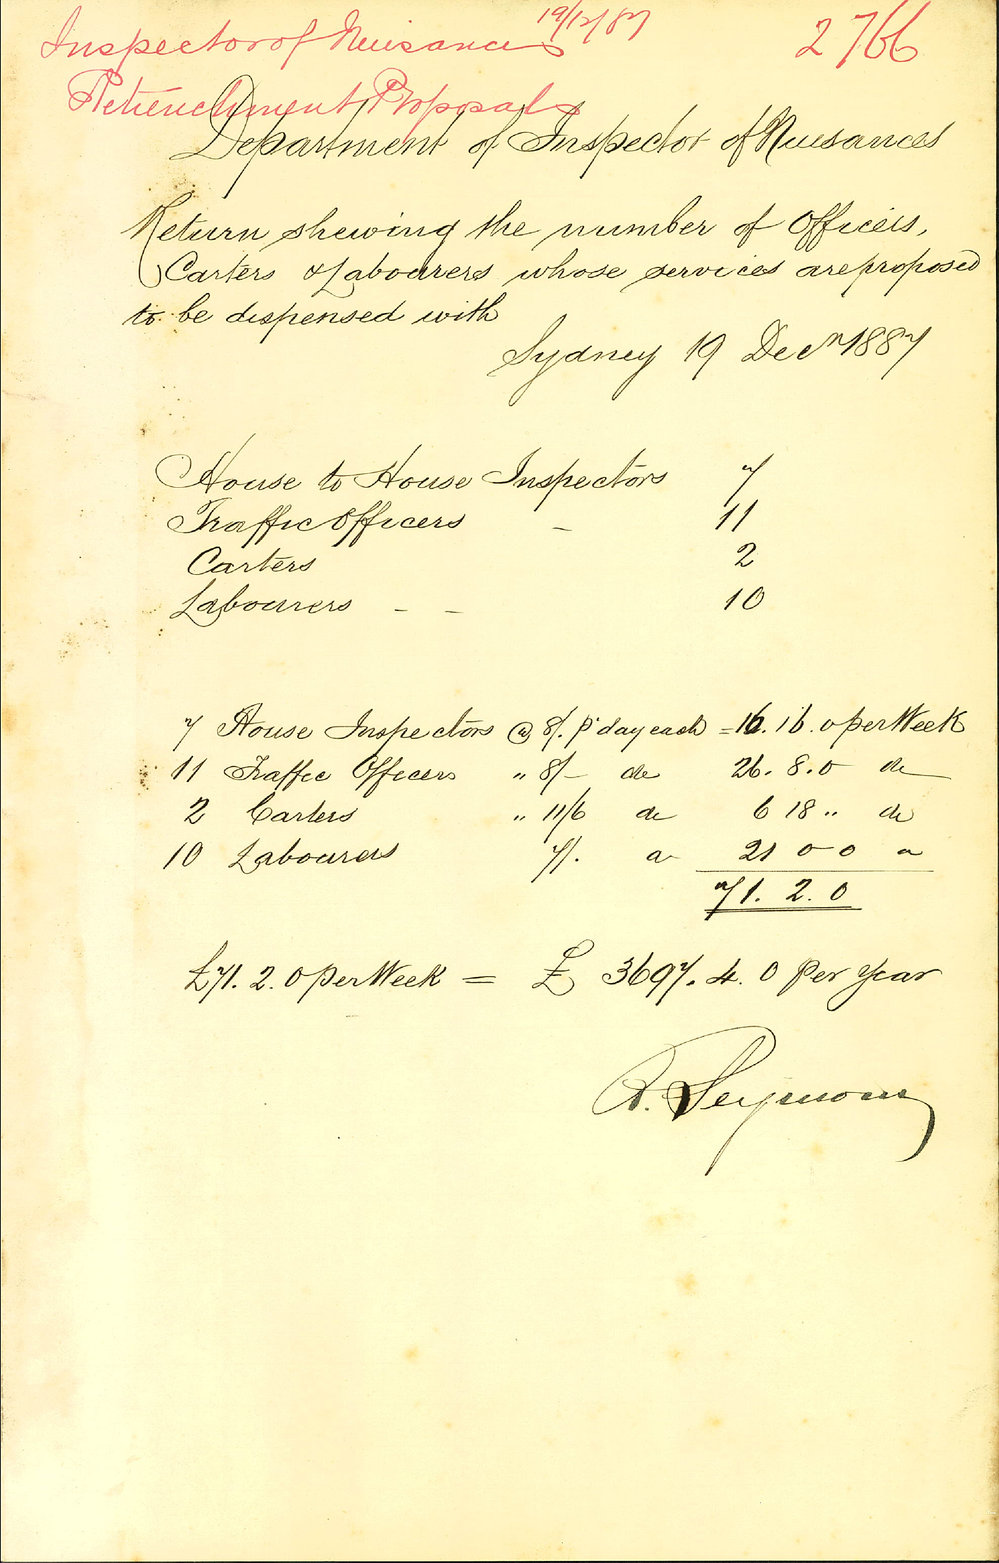 19/12/87
Inspector of Nuisances 2766
Retrenchment Proposals
Department of Inspector of Nuisances
Return shewing the number of Officers,
Carters & Labourers whose services are proposed
to be dispensed with
Sydney 19 Decr 1887
House to House Inspectors 7
Traffic Officers - 11
Carters 2
Labourers - - 10
7 House Inspectors @ 8/. pr day each = 16. 16. 0 per Week
11 Traffic Officers " 8/- do 26. 8. 0 do
2 Carters " 11/6 do 6 18 " do
10 Labourers 7/. do 21 0 0 do
71. 2. 0
£71. 2. 0 per Week = £ 3697. 4. 0 per year
R. Seymour